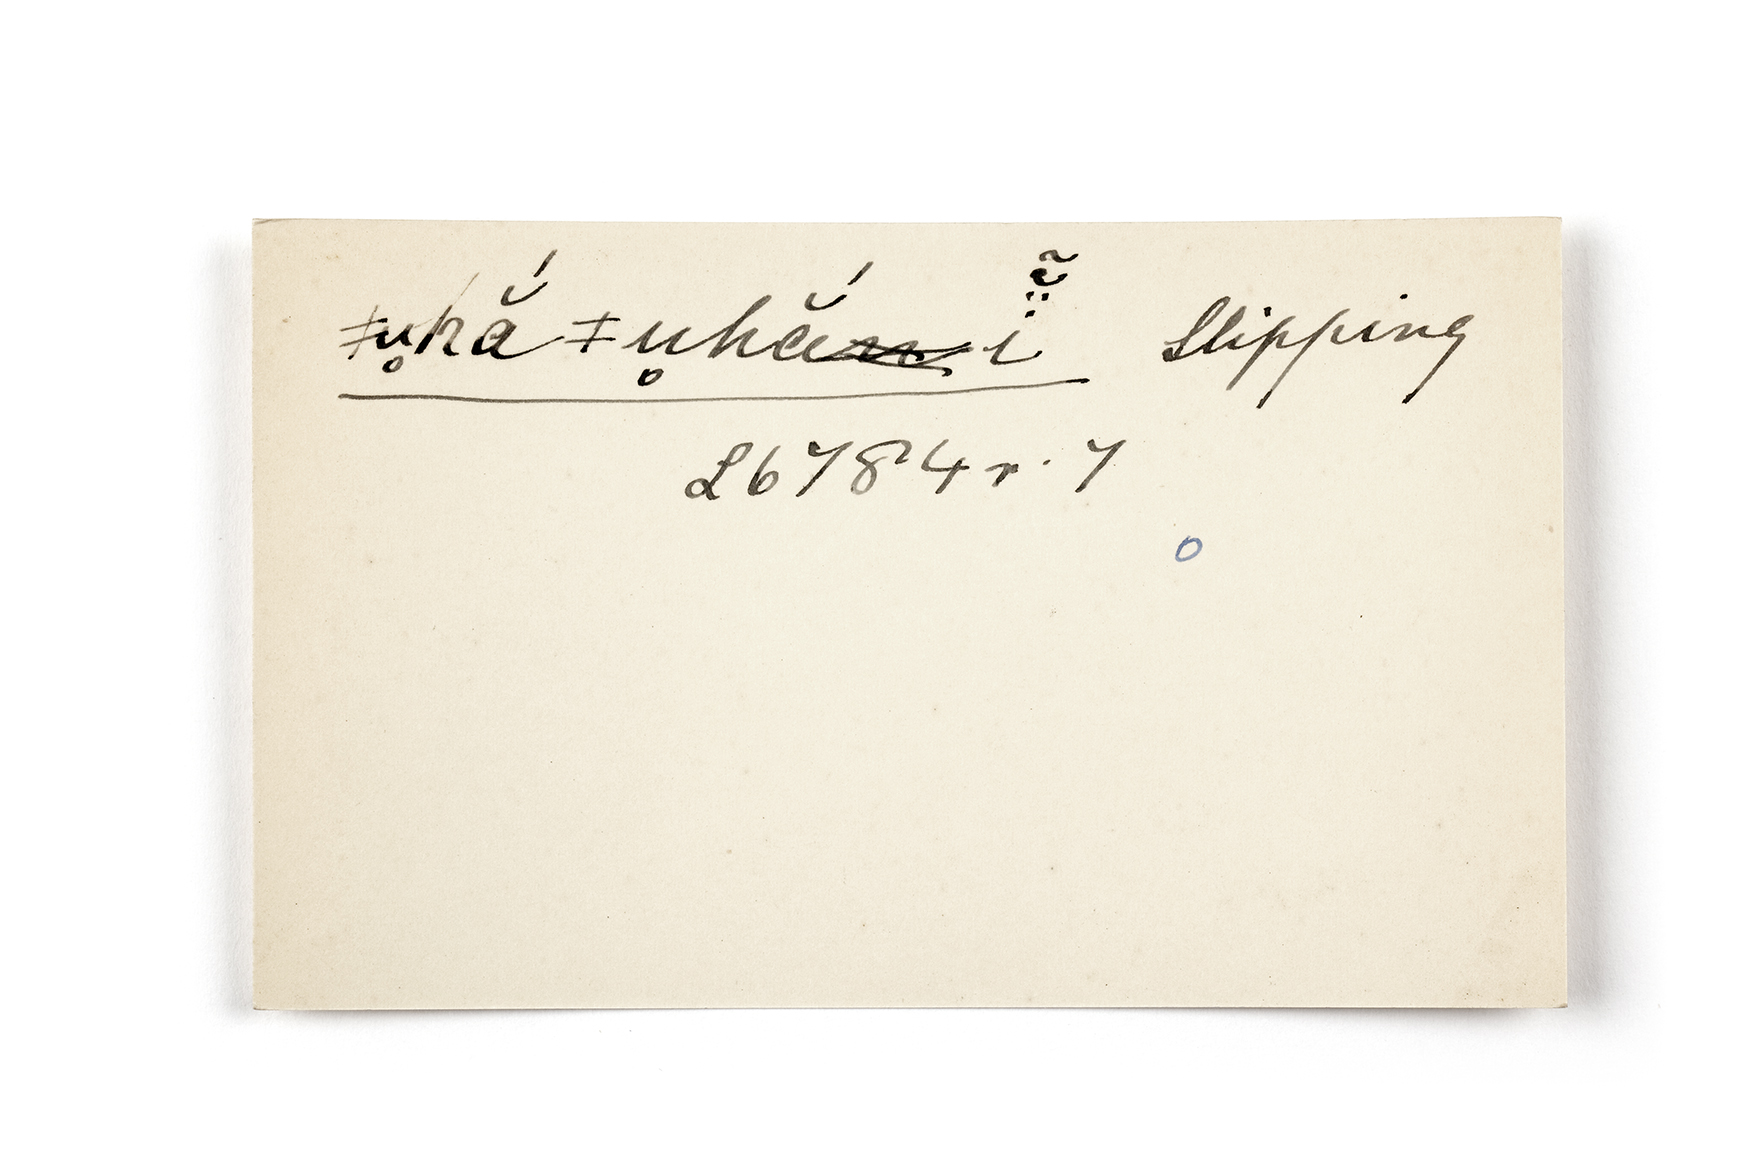 ǂu̥hắ ǂu̥hắ ï̃ Slipping
L6784 r. 7
o